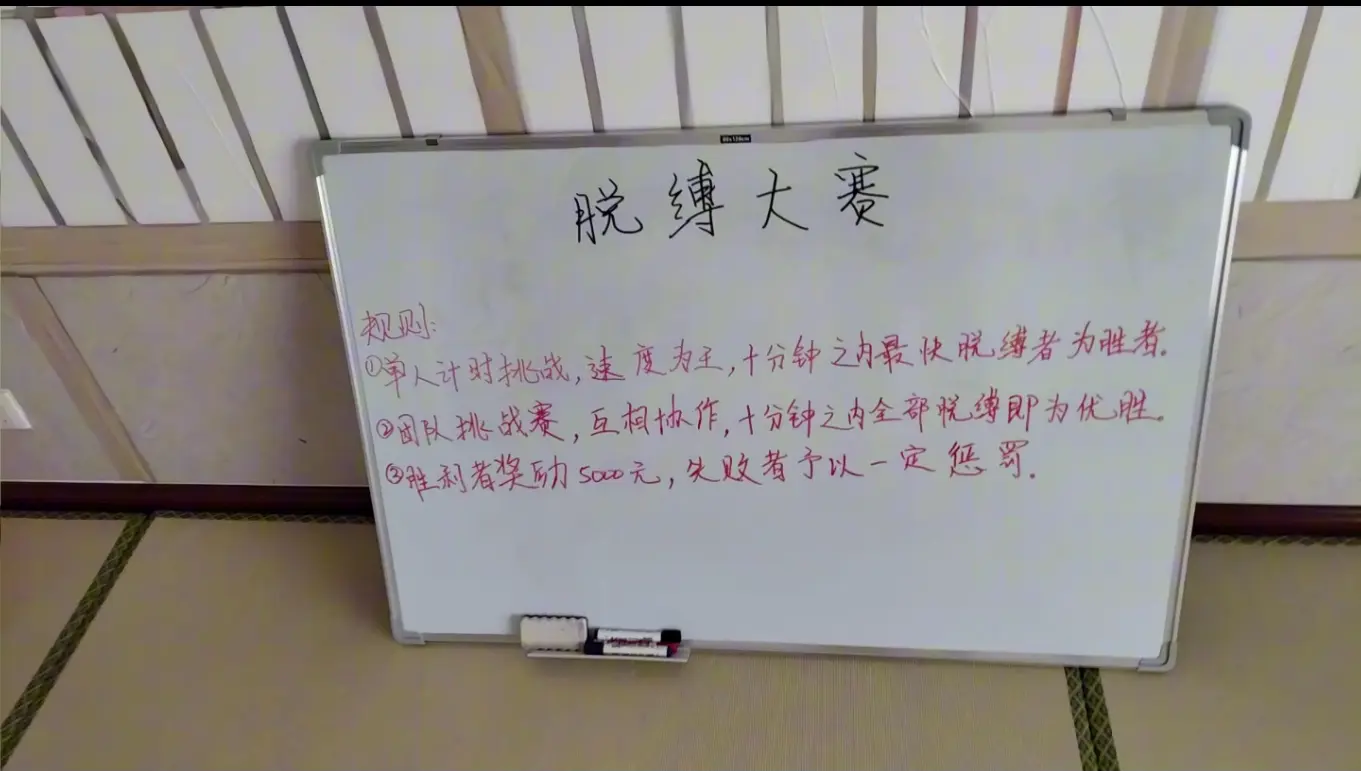 脱缚大赛
规则:
①单人计时挑战,速度为王,十分钟之内最快脱缚者为胜者.
②团队挑战赛,互相协作,十分钟之内全部脱缚即为优胜.
③胜利者奖励5000元,失败者予以一定惩罚.